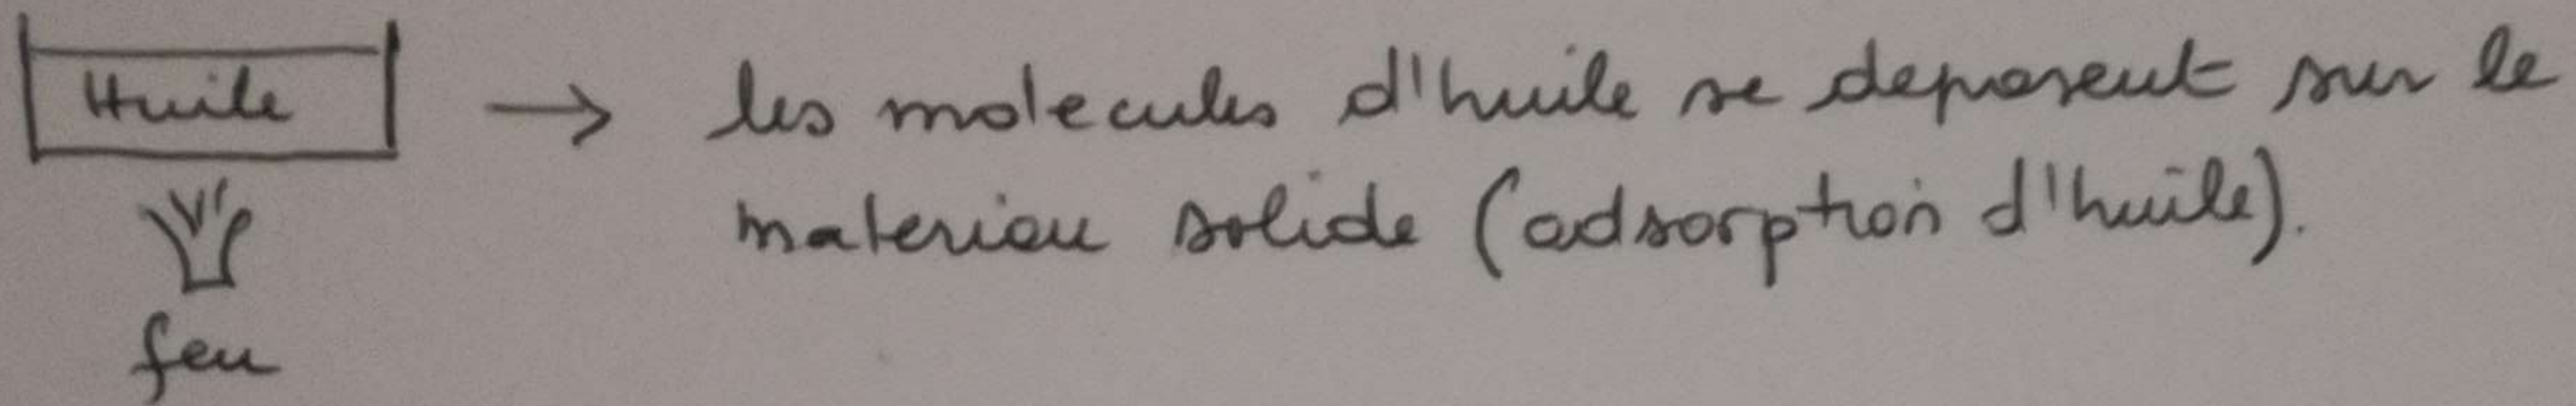 Huile → les molecules d'huile se deposent sur le
materiau solide (adsorption d'huile).
feu